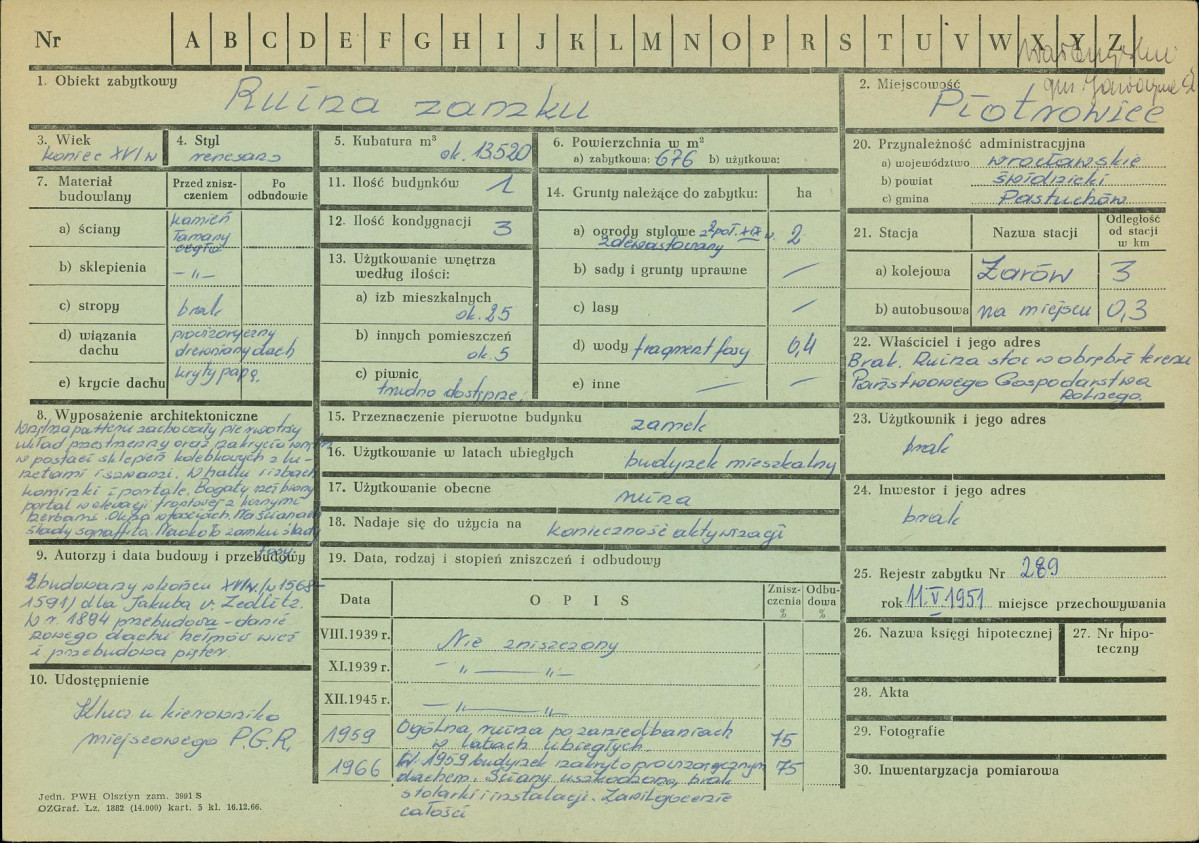 Nr A B C D E F G H I J K L M N O P R S T U V W X Y Z
1. Obiekt zabytkowy
Ruina zamku
2. Miejscowość
Piotrowice
3. Wiek
koniec XVI w
4. Styl
renesans
5. Kubatura m³
ok. 13.520
6. Powierzchnia w m²
a) zabytkowa: 676 b) użytkowa:
7. Materiał budowlany
Przed znisz-
czeniem
Po
odbudowie
a) ściany
kamień
łamany
cegła
b) sklepienia
— „ —
c) stropy
brak
d) wiązania
dachu
prowizoryczny
drewniany dach
e) krycie dachu
kryty papą.
8. Wyposażenie architektoniczne
Wnętrza parteru zachowały pierwotny
układ przestrzenny oraz zakrycie wnętrz
w postaci sklepień kolebkowych z lu-
netami i szwami. W hallu i izbach
kominki i portale. Bogaty rzeźbiony
portal w elewacji frontowej z licznymi
herbami. Okna w fasciach. Na ścianach
ślady sgraffita. Naokoło zamku ślady
fosy.
9. Autorzy i data budowy i przebudowy
Zbudowany w końcu XVI w. /w 1568-
1591/ dla Jakuba v. Zedlitz.
W r. 1894 przebudowa – danie
nowego dachu hełmów wież
i przebudowa pięter.
10. Udostępnienie
Klucz u kierownika
miejscowego P.G.R.
11. Ilość budynków
1
12. Ilość kondygnacji
3
13. Użytkowanie wnętrza
według ilości:
a) izb mieszkalnych
ok. 25
b) innych pomieszczeń
ok. 5
c) piwnic
trudno dostępne.
14. Grunty należące do zabytku: ha
a) ogrody stylowe 2 poł. XIX w. 2
zdewastowany
b) sady i grunty uprawne —
c) lasy —
d) wody fragment fosy 0,4
e) inne — —
15. Przeznaczenie pierwotne budynku zamek
16. Użytkowanie w latach ubiegłych budynek mieszkalny
17. Użytkowanie obecne ruina
18. Nadaje się do użycia na konieczność aktywizacji
19. Data, rodzaj i stopień zniszczeń i odbudowy
Data O P I S Znisz-
czenia
%
Odbu-
dowa
%
VIII.1939 r. Nie zniszczony
XI.1939 r. — „ — „ —
XII.1945 r. — „ — „ —
1959 Ogólna ruina po zaniedbaniach
w latach ubiegłych. 75
1966 W 1959 budynek zakryto prowizorycznym 75
dachem. Ściany uszkodzone, brak
stolarki i instalacji. Zawilgocenie
całości
20. Przynależność administracyjna
a) województwo wrocławskie
b) powiat świdnicki
c) gmina Pastuchów
21. Stacja Nazwa stacji Odległość
od stacji
w km
a) kolejowa Żarów 3
b) autobusowa na miejscu 0,3
22. Właściciel i jego adres
Brak. Ruina stoi w obrębie terenu
Państwowego Gospodarstwa
Rolnego.
23. Użytkownik i jego adres
brak
24. Inwestor i jego adres
brak
25. Rejestr zabytku Nr 289
rok 11.V.1951 miejsce przechowywania
26. Nazwa księgi hipotecznej
27. Nr hipo-
teczny
28. Akta
29. Fotografie
30. Inwentaryzacja pomiarowa
Jedn. PWH Olsztyn zam. 3991 S
OZGraf. Lz. 1882 (14.000) kart. 5 kl. 16.12.66.